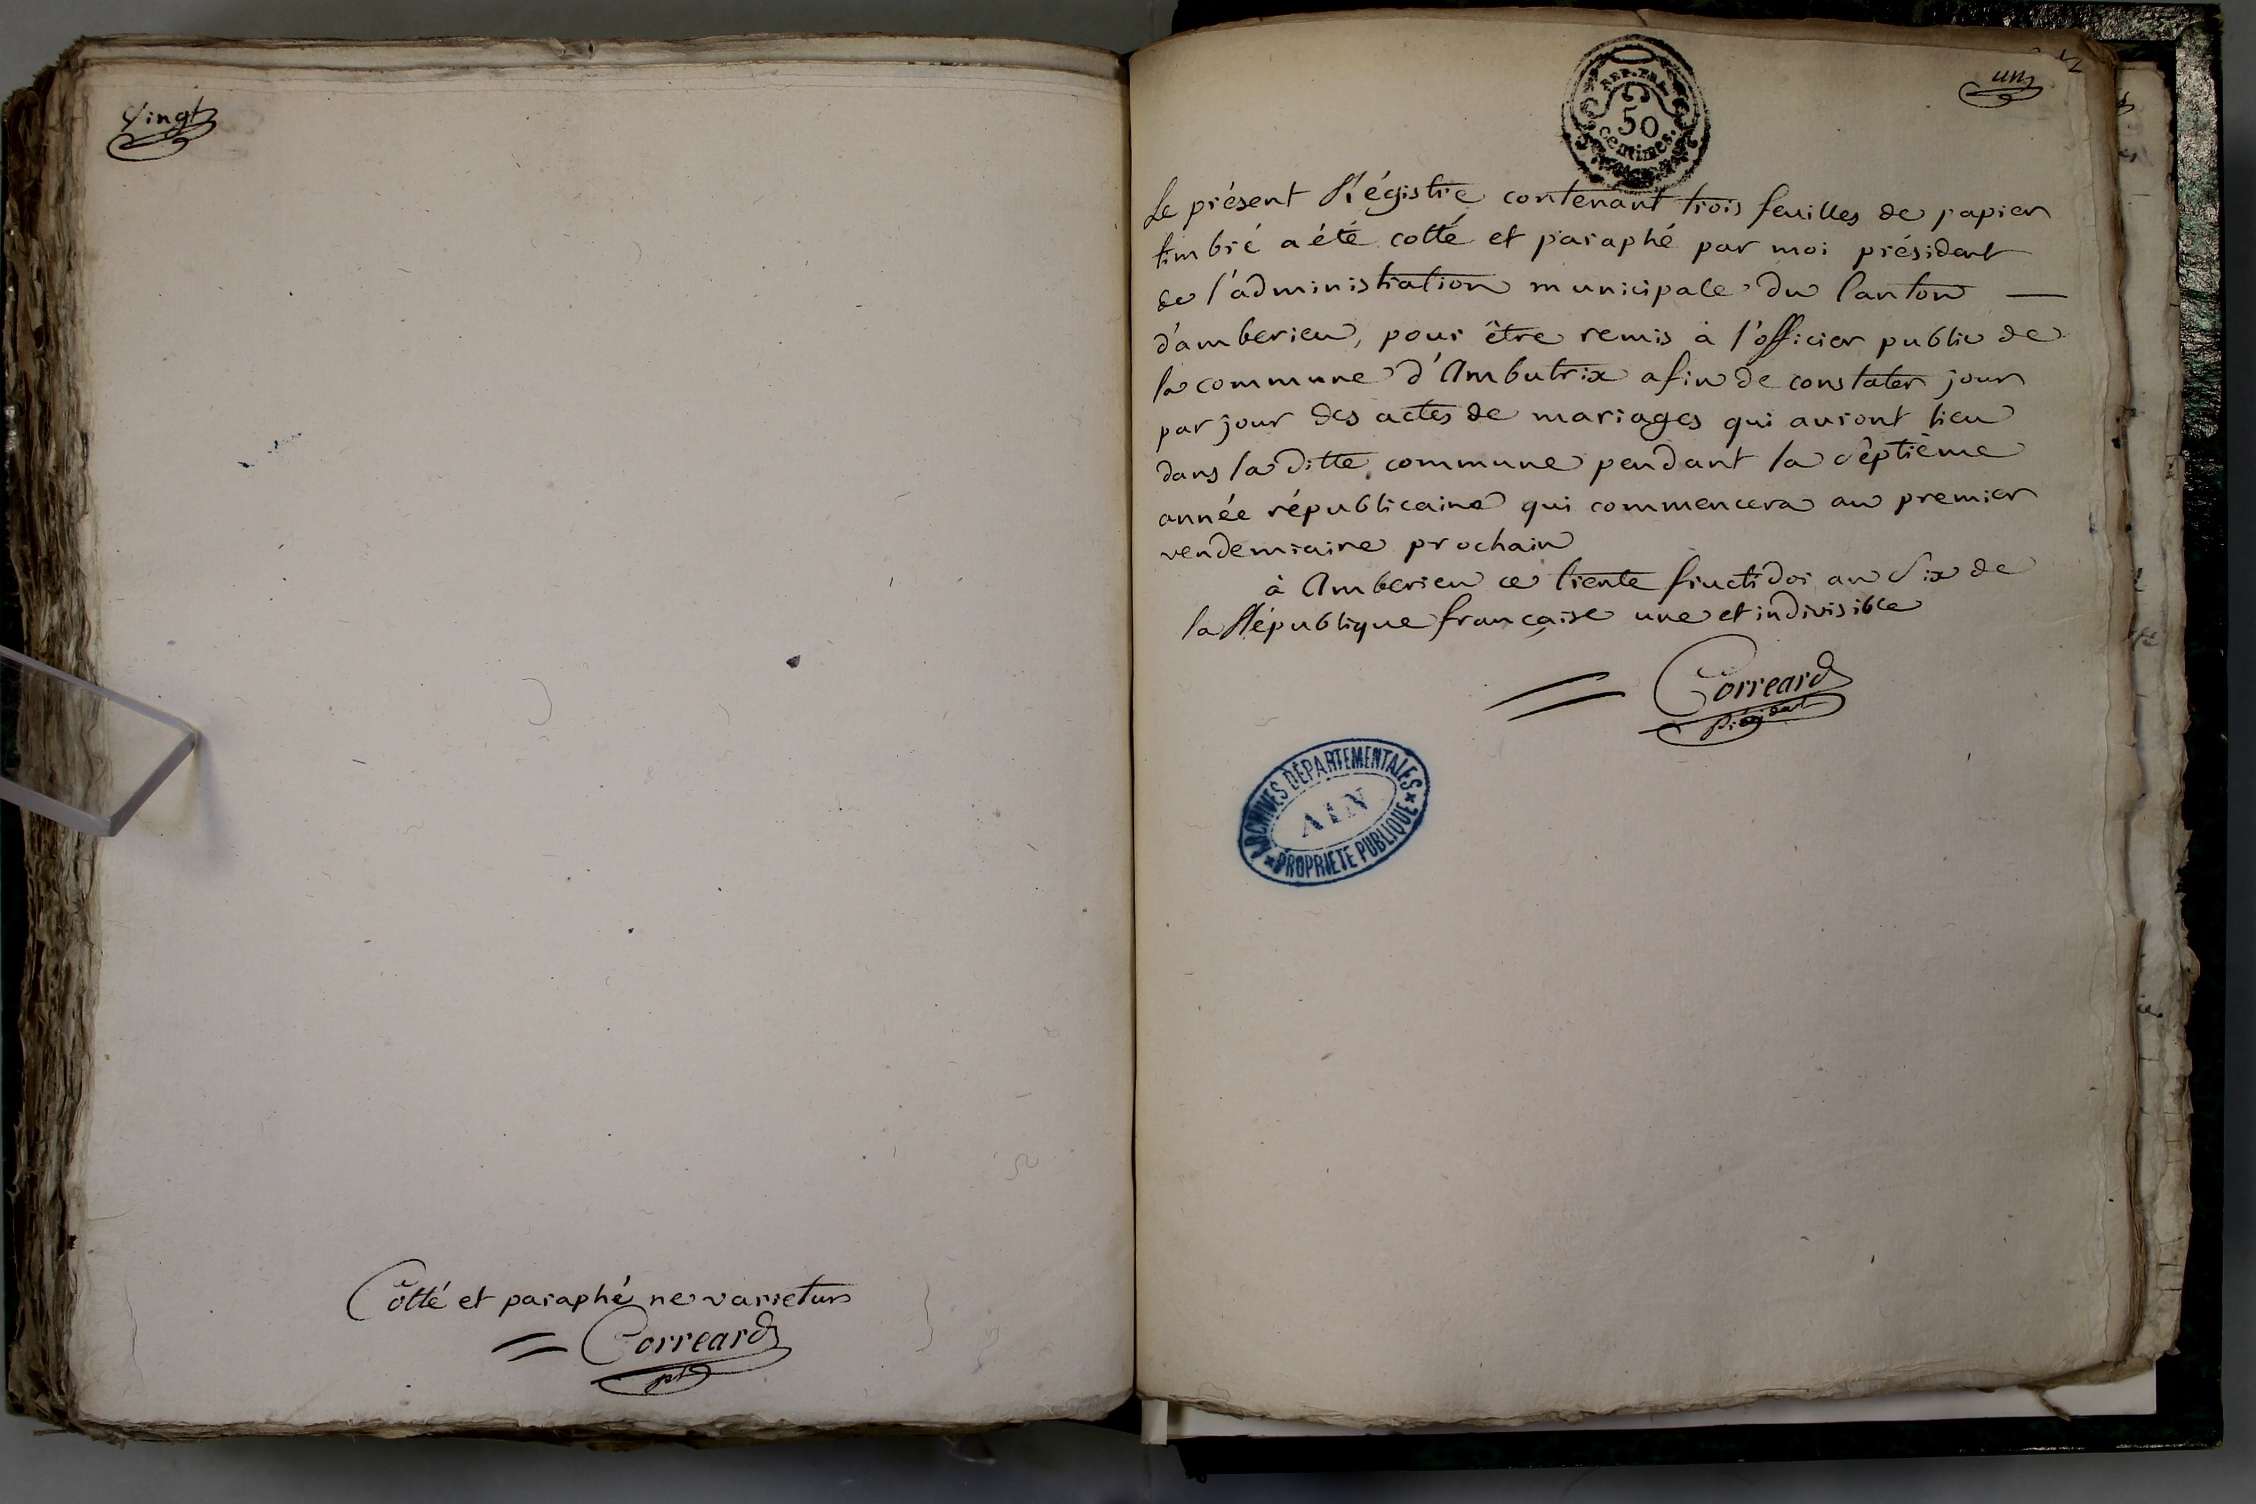 Vingt
Cotté et paraphé ne varietur
Correard
pt
un
REP. FRA.
50
centimes.
Le présent Régistre contenant trois feuilles de papier
timbré a été cotté et paraphé par moi président
de l'administration municipale du Canton —
d'amberieu, pour être remis à l'officier public de
la commune d'Ambutrix afin de constater jour
par jour des actes de mariages qui auront lieu
dans la ditte commune pendant la séptième
année républicaine qui commencera au premier
vendemiaire prochain
à Amberieu ce trente fructidor an Six de
la République française une et indivisible
Correard
Président
ARCHIVES DÉPARTEMENTALES
AIN
PROPRIÉTÉ PUBLIQUE